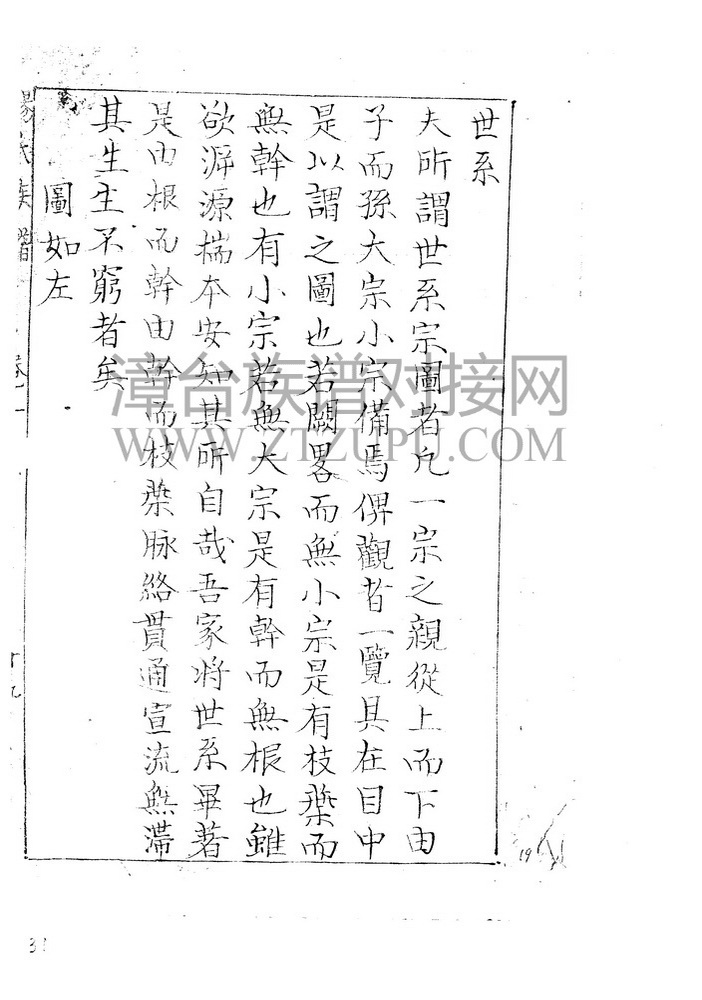 世系
夫所謂世系宗圖者凡一宗之親從上而下由
子而孫大宗小宗備焉俾觀者一覽具在目中
是以謂之圖也若闕畧而無小宗是有枝葉而
無幹也有小宗若無大宗是有幹而無根也雖
欲泝源揣本安知其所自哉吾家將世系畢著
是由根而幹由幹而枝葉脉絡貫通宣流無滯
其生生不窮者矣
圖如左
族譜
卷一
十九
漳台族谱对接网
WWW.ZTZUPU.COM
19